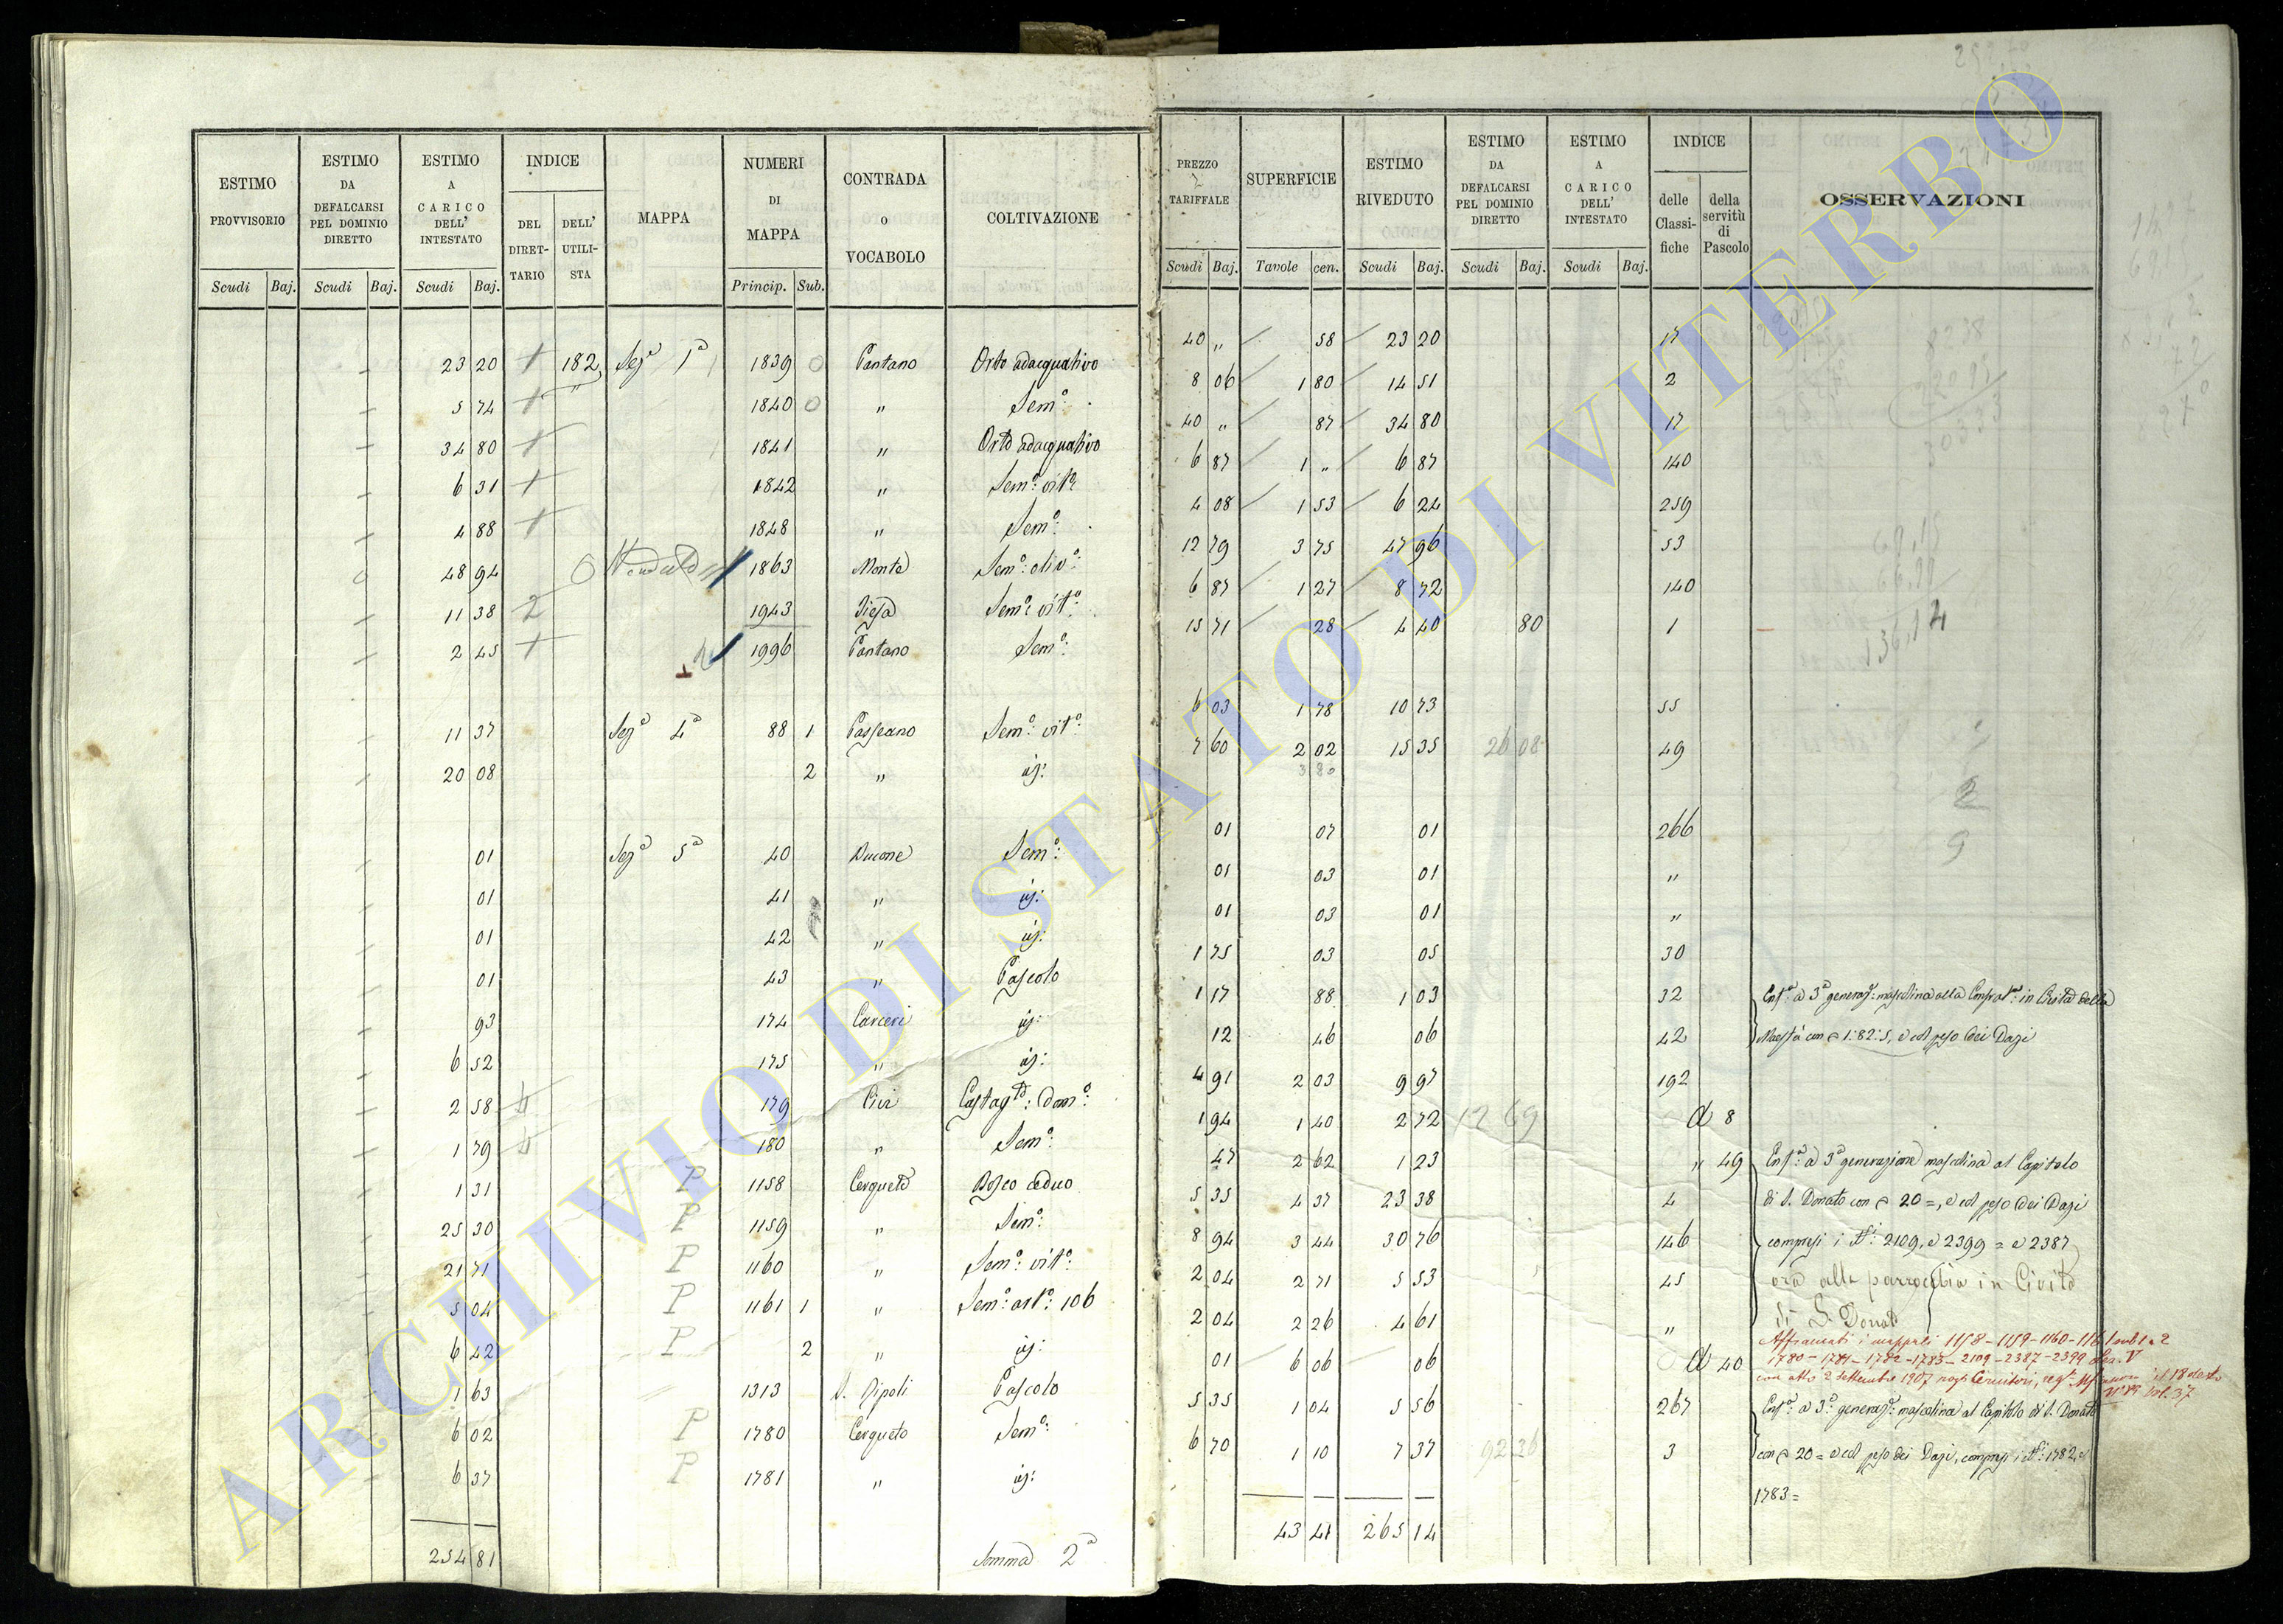 ESTIMO PROVVISORIO | ESTIMO DA DEFALCARSI PEL DOMINIO DIRETTO | ESTIMO A CARICO DELL' INTESTATO | INDICE | MAPPA | NUMERI DI MAPPA | CONTRADA o VOCABOLO | COLTIVAZIONE
DEL DIRET-TARIO | DELL' UTILI-STA
Scudi | Baj. | Scudi | Baj. | Scudi | Baj. | Princip. | Sub.
23 20 | 182 | Sez.ª 1ª | 1839 0 | Pantano | Orto adacquativo
5 74 | " | 1840 0 | " | Sem.º
34 80 | 1841 | " | Orto adacquativo
6 31 | 1842 | " | Sem.º vit.º
4 88 | 1848 | " | Sem.º
48 94 | 1863 | Monte | Sem.º oliv.º
11 38 | 2 | 1943 | Sem.º vit.º
2 45 | 1996 | Pantano | Sem.º
11 37 | Sez.ª 4ª | 88 1 | Sem.º vit.º
20 08 | 2 | " | id:
01 | Sez.ª 5ª | 40 | Sem.º
01 | 41 | " | id:
01 | 42 | " | id:
01 | 43 | " | Pascolo
93 | 174 | Carceri | id:
6 52 | 175 | " | id:
2 58 | 179 | Castag.to: dom.º
1 79 | 180 | " | Sem.º
1 31 | P | 1158 | Cerqueto | Bosco ceduo
25 30 | P | 1159 | " | Sem.º
21 71 | P | 1160 | " | Sem.º vit.º
5 04 | P | 1161 1 | " | Sem.º art.º 106
6 42 | P | 2 | " | id:
1 63 | 1313 | Pascolo
6 02 | P | 1780 | Cerqueto | Sem.º
6 37 | P | 1781 | " | id:
254 81 | Somma 2ª
PREZZO TARIFFALE | SUPERFICIE | ESTIMO RIVEDUTO | ESTIMO DA DEFALCARSI PEL DOMINIO DIRETTO | ESTIMO A CARICO DELL' INTESTATO | INDICE | OSSERVAZIONI
delle Classi-fiche | della servitù di Pascolo
Scudi | Baj. | Tavole | cen. | Scudi | Baj. | Scudi | Baj. | Scudi | Baj.
40 " | 58 | 23 20 | 17
8 06 | 1 80 | 14 51 | 2
40 " | 87 | 34 80 | 17
6 87 | 1 " | 6 87 | 140
4 08 | 1 53 | 6 24 | 259
12 79 | 3 75 | 47 96 | 53
6 87 | 1 27 | 8 72 | 140
15 71 | 28 | 4 40 | 80 | 1
6 03 | 1 78 | 10 73 | 55
7 60 | 2 02 | 15 35 | 26 08 | 49
3 80
01 | 07 | 01 | 266
01 | 03 | 01 | "
01 | 03 | 01 | "
1 75 | 03 | 05 | 30
1 17 | 88 | 1 03 | 32 | Enf.ª a 3ª generaz.e mascolina alla in Civita della
12 | 46 | 06 | 42 | Maestà con 1:82:5, e col peso dei Dazi
4 91 | 2 03 | 9 97 | 192
1 94 | 1 40 | 2 72 | 12 69 | d 8
47 | 2 62 | 1 23 | " 49 | Enf.ª a 3ª generazione mascolina al Capitolo
5 35 | 4 37 | 23 38 | 4 | di S. Donato con 20 =, e col peso dei Dazi
8 94 | 3 44 | 30 76 | 146 | compresi i N.i 2109, e 2399 = e 2387
2 04 | 2 71 | 5 53 | 45 | ora alla parrocchia in Civita
2 04 | 2 26 | 4 61 | " | di S. Donato
Affrancati i mappali 1158-1159-1160-1161 sub 1 e 2
01 | 6 06 | 06 | d 40 | 1780-1781-1782-1783-2109-2387-2399 Sez. V
con atto 2 settembre 1907
5 35 | 1 04 | 5 56 | 267 | Enf.ª a 3ª generaz.e mascolina al Capitolo di S. Donato
6 70 | 1 10 | 7 37 | 92 36 | 3 | con 20 = e col peso dei Dazi, compresi i N.i 1782, e
1783 =
43 41 | 265 14
136,14
ARCHIVIO DI STATO DI VITERBO